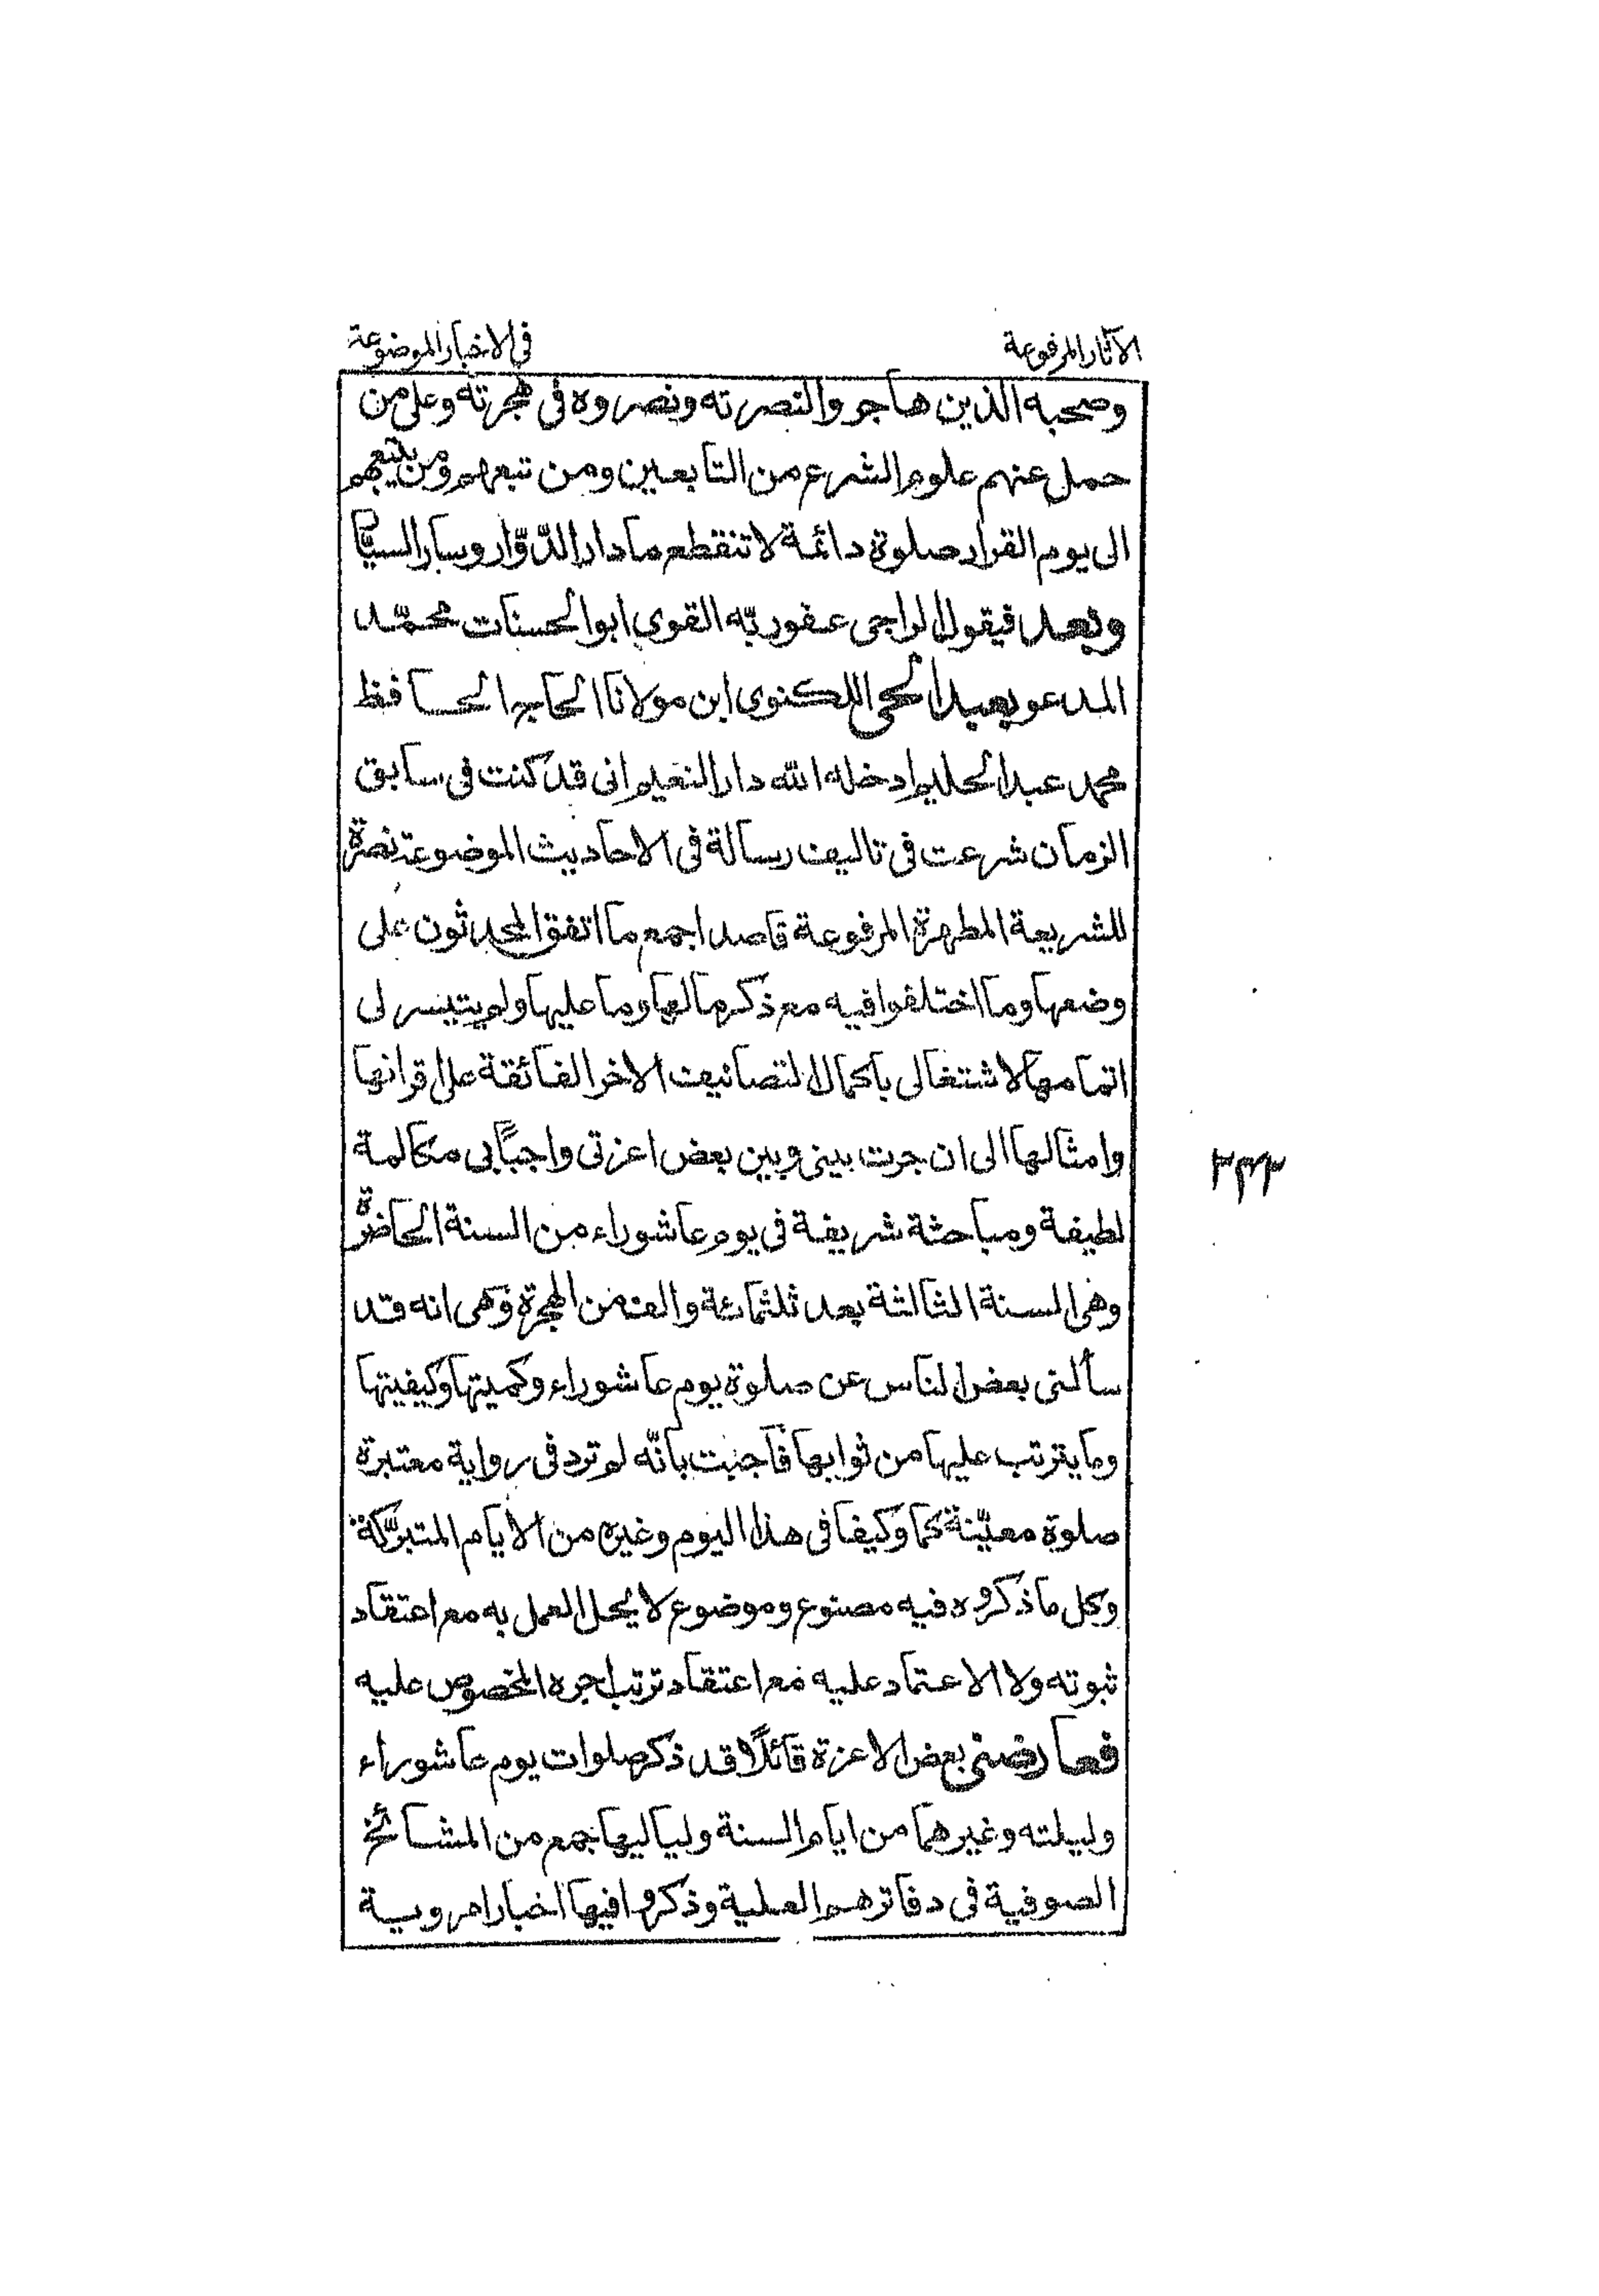 الآثار المرفوعة
في الاخبار الموضوعة
وصحبه الذين هاجروا لنصرته ونصروه في هجرته وعلى من
حمل عنهم علوم الشرع من التابعين ومن تبعهم ومن يتبعهم
الى يوم القرار صلوة دائمة لا تنقطع ما دار الدّوّار وسار السيّا
وبعد فيقول الراجي عفو ربّه القوي ابو الحسنات محمّد
المدعو بعبد الحي اللكنوي ابن مولانا الحاج الحافظ
محمد عبد الحليم ادخله الله دار النعيم اني قد كنت في سابق
الزمان شرعت في تاليف رسالة في الاحاديث الموضوعة نصرة
للشريعة المطهرة المرفوعة قاصدا جمع ما اتفق المحدثون على
وضعها وما اختلفوا فيه مع ذكر ما لها وما عليها ولم يتيسر لي
اتمامها لاشتغالي باكمال التصانيف الاخر الفائقة على اقرانها
وامثالها الى ان جرت بيني وبين بعض اعزتي واحبّابي مكالمة
لطيفة ومباحثة شريفة في يوم عاشوراء من السنة الحاضرة
وهي السنة الثالثة بعد ثلثمائة والف من الهجرة وهي انه قد
سألني بعض الناس عن صلوة يوم عاشوراء وكميتها وكيفيتها
وما يترتب عليها من ثوابها فأجبت بأنّه لم ترد في رواية معتبرة
صلوة معيّنة كما وكيفا في هذا اليوم وغيره من الايام المتبرّكة
وكل ما ذكروه فيه مصنوع وموضوع لا يحل العمل به مع اعتقاد
ثبوته ولا الاعتماد عليه مع اعتقاد ترتب اجره المخصوص عليه
فعارضني بعض الاعزة قائلًا قد ذكر صلوات يوم عاشوراء
وليلته وغيرهما من ايام السنة ولياليها جمع من المشائخ
الصوفية في دفاترهم العلية وذكروا فيها اخبارا مروية